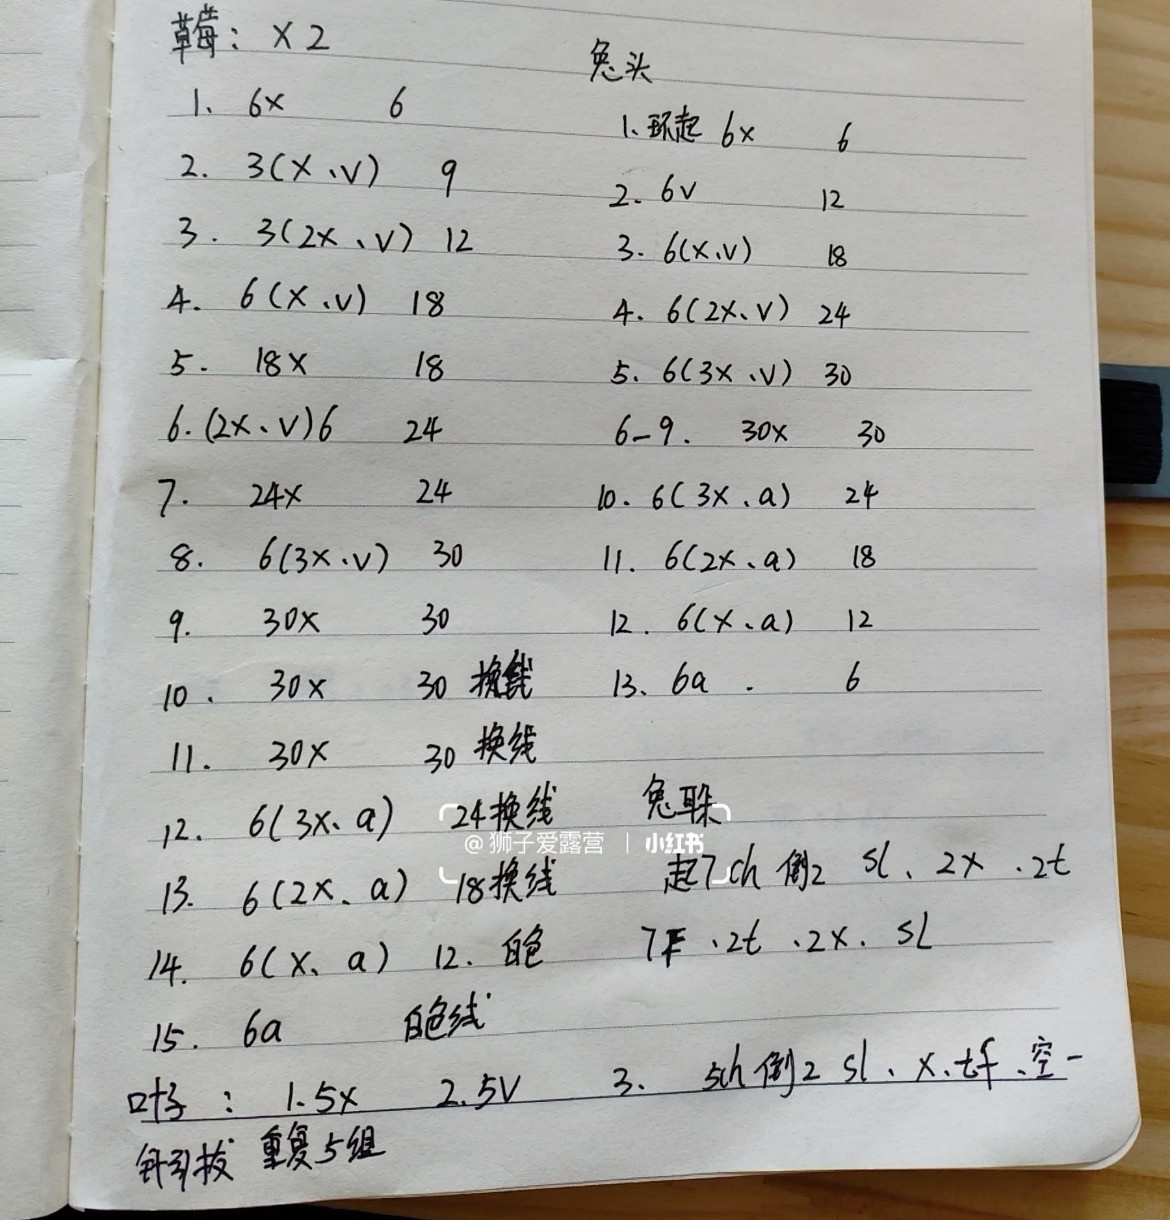 草莓: X 2
1. 6x 6
2. 3(X、V) 9
3. 3(2x、V) 12
4. 6(X、V) 18
5. 18X 18
6. (2X、V)6 24
7. 24X 24
8. 6(3X、V) 30
9. 30X 30
10. 30X 30 换线
11. 30X 30 换线
12. 6(3X、a) 24换线
13. 6(2X、a) 18换线
14. 6(X、a) 12. 白色
15. 6a 白色线
兔头
1、环起 6x 6
2. 6V 12
3. 6(X、V) 18
4. 6(2X、V) 24
5. 6(3X、V) 30
6-9. 30X 30
10. 6(3X、a) 24
11. 6(2X、a) 18
12. 6(X、a) 12
13、6a. 6
兔耳朵
起7ch 倒2 sl、2X、2t
7F、2t、2X、SL
叶子: 1.5X 2.5V 3. 5ch倒2 sl、X、tf、空一
针引拔 重复5组
@狮子爱露营 | 小红书